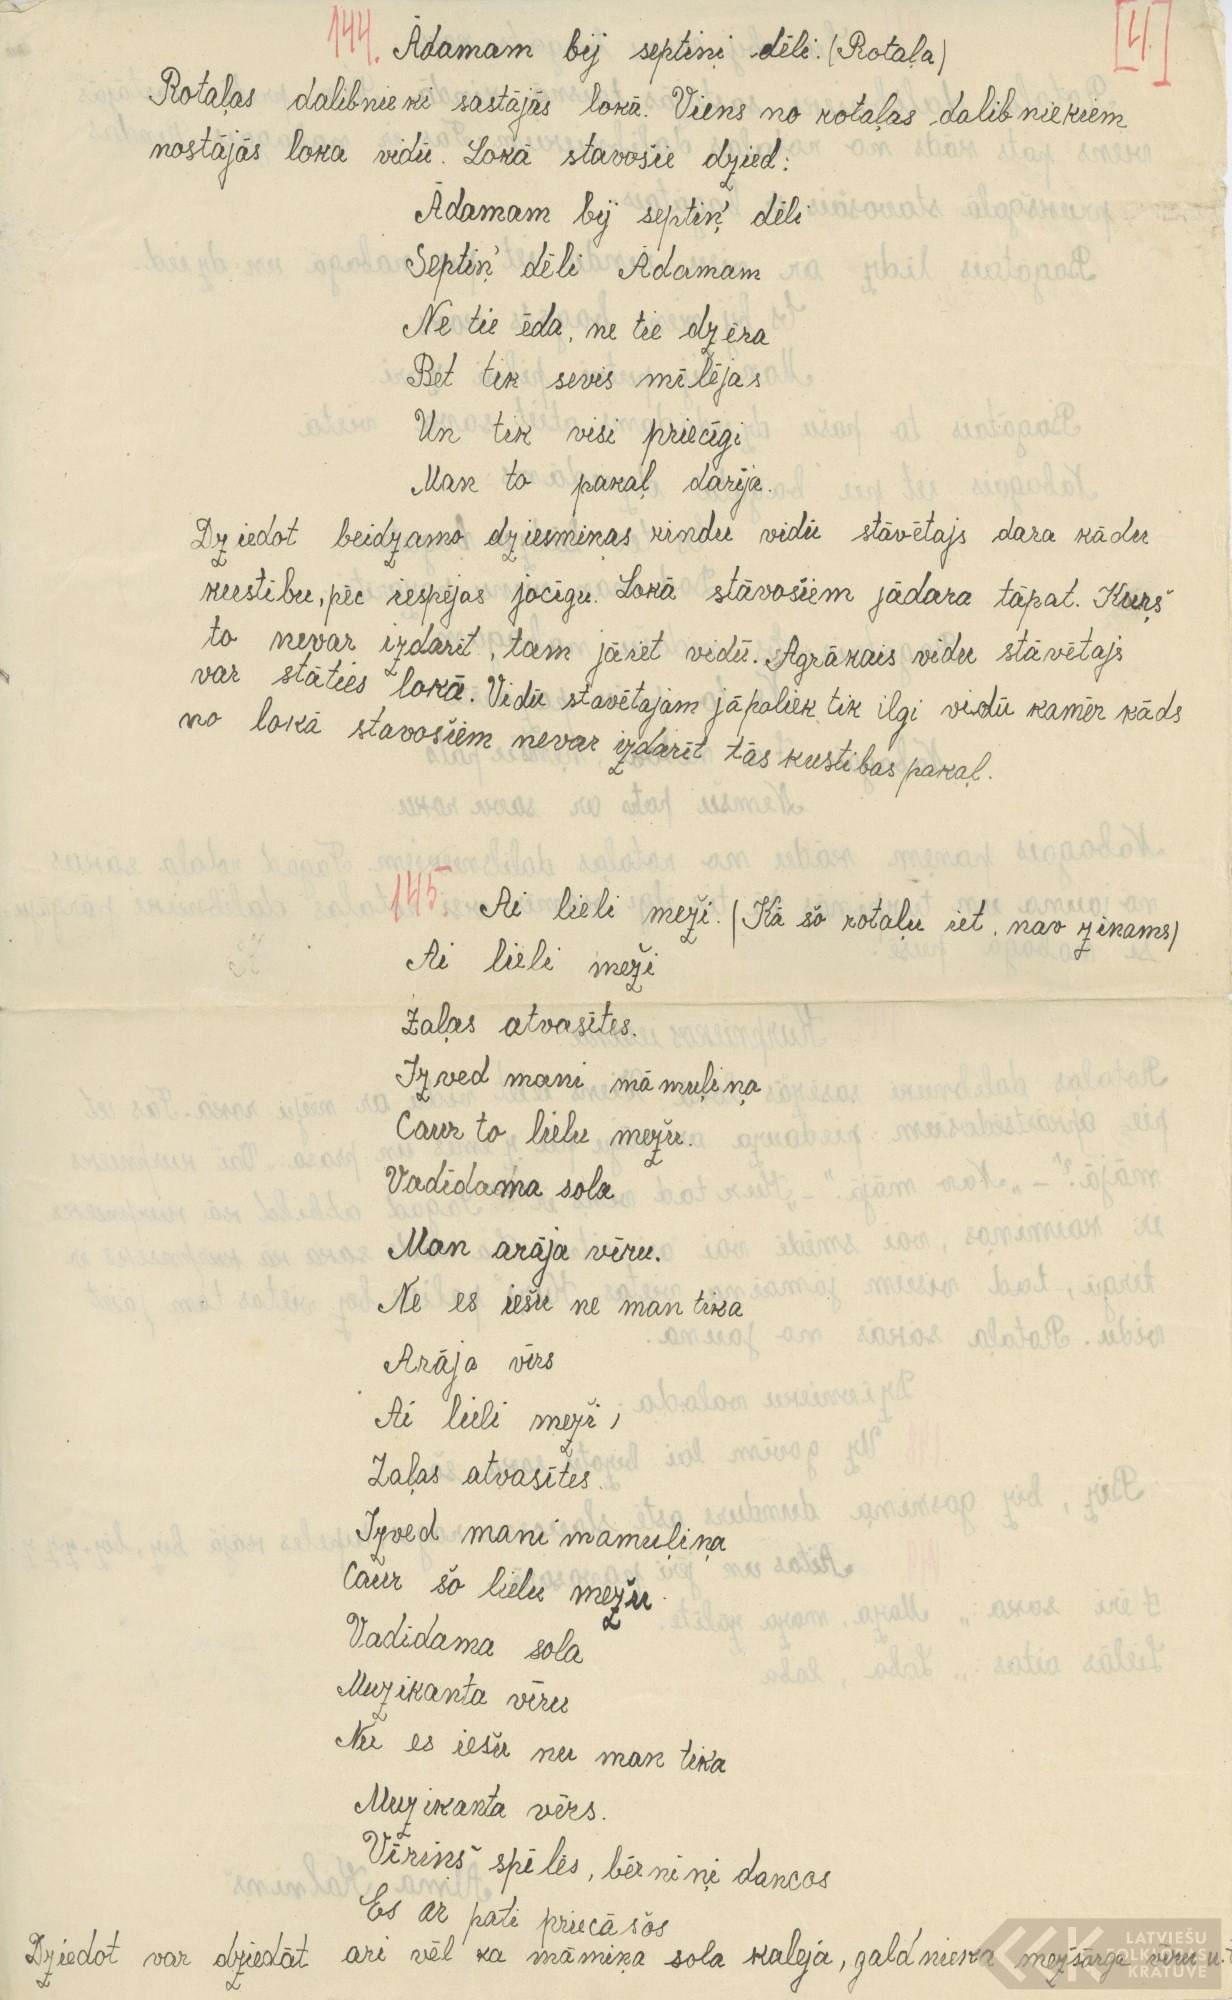 144. Ādamam bij septiņi dēli. (Rotaļa) [4.]
Rotaļas dalibnieki sastājās lokā. Viens no rotaļas dalibniekiem
nostājās loka vidū. Lokā stavošie dzied:
Ādamam bij septiņ' dēli
Septiņ' dēli Ādamam
Ne tie ēda, ne tie dzēra
Bet tik sevis mīlējas
Un tik visi priecīgi
Man to pakaļ darīja.
Dziedot beidzamo dziesmiņas rindu vidū stāvētajs dara kādu
kustību, pēc iespējas jocīgu. Lokā stāvošiem jādara tāpat. Kuŗš
to nevar izdarīt, tam jāiet vidū. Agrākais vidu stāvētajs
var stāties lokā. Vidū stavētajam jāpaliek tik ilgi vidū kamēr kāds
no lokā stavošiem nevar izdarīt tās kustibas pakaļ.
145 Ai lieli meži. (Kā šo rotaļu iet, nav zinams)
Ai lieli meži
Zaļas atvasītes.
Izved mani māmuļiņa
Caur to lielu mežu.
Vadīdama sola
Man arāja vīru.
Ne es iešu ne man tika
Arāja vīrs
Ai lieli meži,
Zaļas atvasītes.
Izved mani mamuļiņa
Caur šo lielu mežu.
Vadidama sola
Muzikanta vīru
Nu es iešu nu man tika
Muzikanta vīrs.
Vīriņš spēlēs, bērniņi dancos
Es ar pati priecāšos
Dziedot var dziedāt ari vēl ka māmiņa sola kaleja, galdnieka mežsārga vīru u.t
LATVIEŠU
FOLKLORAS
KRĀTUVE